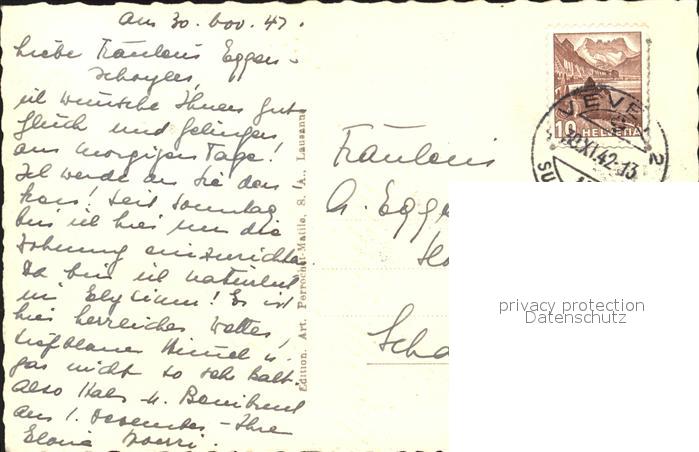 am 30. Nov. 42.
Liebe Fräulein Eggen-
ich wünsche Ihnen gut
Glück und Gelingen
am morgigen Tage!
Ich werde an Sie den
ken! Seit Sonntag
bin ich hier um die
Wohnung einzurichten
Da bin ich natürlich
im Elysium! Es ist
hier herrliches Wetter,
tiefblauer Himmel u.
gar nicht so sehr kalt.
Also Hals- u. Beinbruch
am 1. Dezember - Ihre
Edition. Art. Perrochet-Matile. S. A., Lausanne
10 HELVETIA
VEVEY 2
30.XI.42-13
Fräulein
A. Egge
Scha
privacy protection
Datenschutz